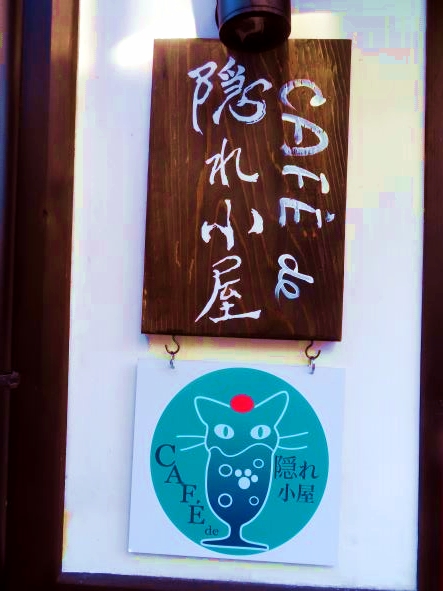 CAFÉ de
隠れ小屋
CAFÉ de
隠れ
小屋